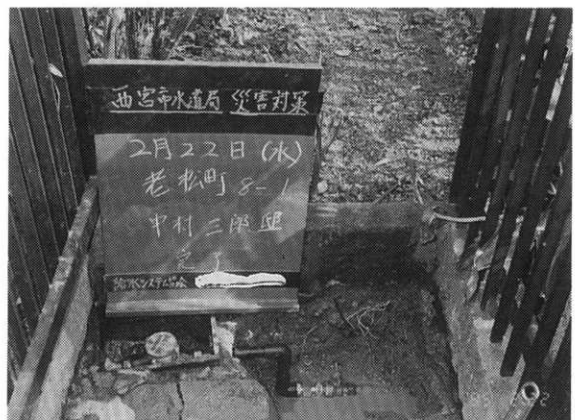 西宮市水道局 災害対策
2月22日(水)
老松町8-1
中村三郎邸
完了